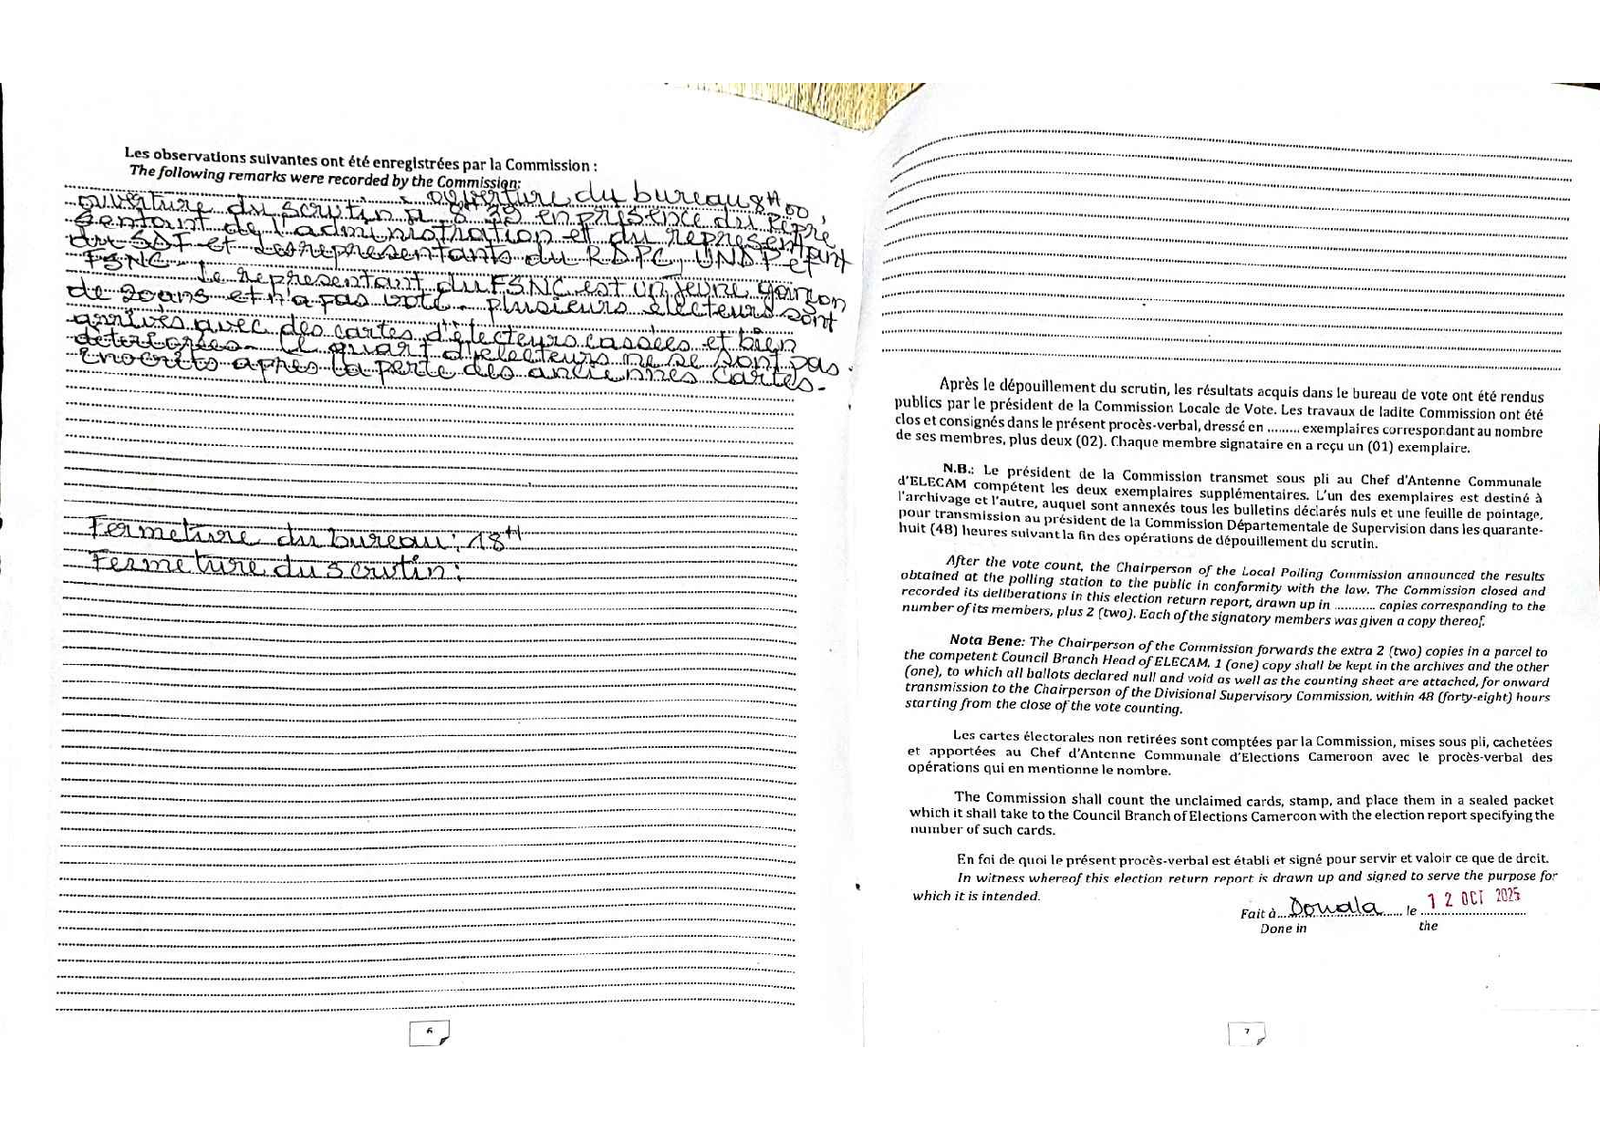 Les observations suivantes ont été enregistrées par la Commission :
The following remarks were recorded by the Commission:
ouverture du bureau 8H00,
ouverture du scrutin à 8H 33 en présence du repre
sentant de l'administration et du representant
du SDF et des representants du RDPC, UNDP et
FSNC. Le representant du FSNC est un jeune garçon
de 20ans et n'a pas voté. plusieurs électeurs sont
arrivés avec des cartes d'électeurs cassées et bien
deteriorées. Le quart d'électeurs ne se sont pas
inscrits après la perte des anciennes cartes.
Fermeture du bureau : 18H
Fermeture du scrutin :
6
Après le dépouillement du scrutin, les résultats acquis dans le bureau de vote ont été rendus
publics par le président de la Commission Locale de Vote. Les travaux de ladite Commission ont été
clos et consignés dans le présent procès-verbal, dressé en ......... exemplaires correspondant au nombre
de ses membres, plus deux (02). Chaque membre signataire en a reçu un (01) exemplaire.
N.B.: Le président de la Commission transmet sous pli au Chef d'Antenne Communale
d'ELECAM compétent les deux exemplaires supplémentaires. L'un des exemplaires est destiné à
l'archivage et l'autre, auquel sont annexés tous les bulletins déclarés nuls et une feuille de pointage,
pour transmission au président de la Commission Départementale de Supervision dans les quarante-
huit (48) heures suivant la fin des opérations de dépouillement du scrutin.
After the vote count, the Chairperson of the Local Polling Commission announced the results
obtained at the polling station to the public in conformity with the law. The Commission closed and
recorded its deliberations in this election return report, drawn up in ........... copies corresponding to the
number of its members, plus 2 (two). Each of the signatory members was given a copy thereof.
Nota Bene: The Chairperson of the Commission forwards the extra 2 (two) copies in a parcel to
the competent Council Branch Head of ELECAM, 1 (one) copy shall be kept in the archives and the other
(one), to which all ballots declared null and void as well as the counting sheet are attached, for onward
transmission to the Chairperson of the Divisional Supervisory Commission, within 48 (forty-eight) hours
starting from the close of the vote counting.
Les cartes électorales non retirées sont comptées par la Commission, mises sous pli, cachetées
et apportées au Chef d'Antenne Communale d'Elections Cameroon avec le procès-verbal des
opérations qui en mentionne le nombre.
The Commission shall count the unclaimed cards, stamp, and place them in a sealed packet
which it shall take to the Council Branch of Elections Cameroon with the election report specifying the
number of such cards.
En foi de quoi le présent procès-verbal est établi et signé pour servir et valoir ce que de droit.
In witness whereof this election return report is drawn up and signed to serve the purpose for
which it is intended.
Fait à Douala le 12 OCT 2025
Done in the
7